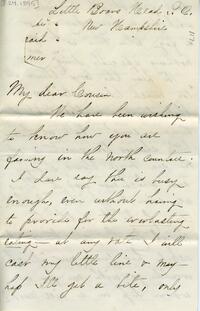 [? 24, 1895]
Little Boars Head, P.O.
New Hampshire
My dear Cousin.
We have been wishing
to know how you are
faring in the North countree.
I dare say this is busy
enough, even without having
to provide for the everlasting
eating — at any rate I will
cast my little line & may-
hap I'll get a bite, only